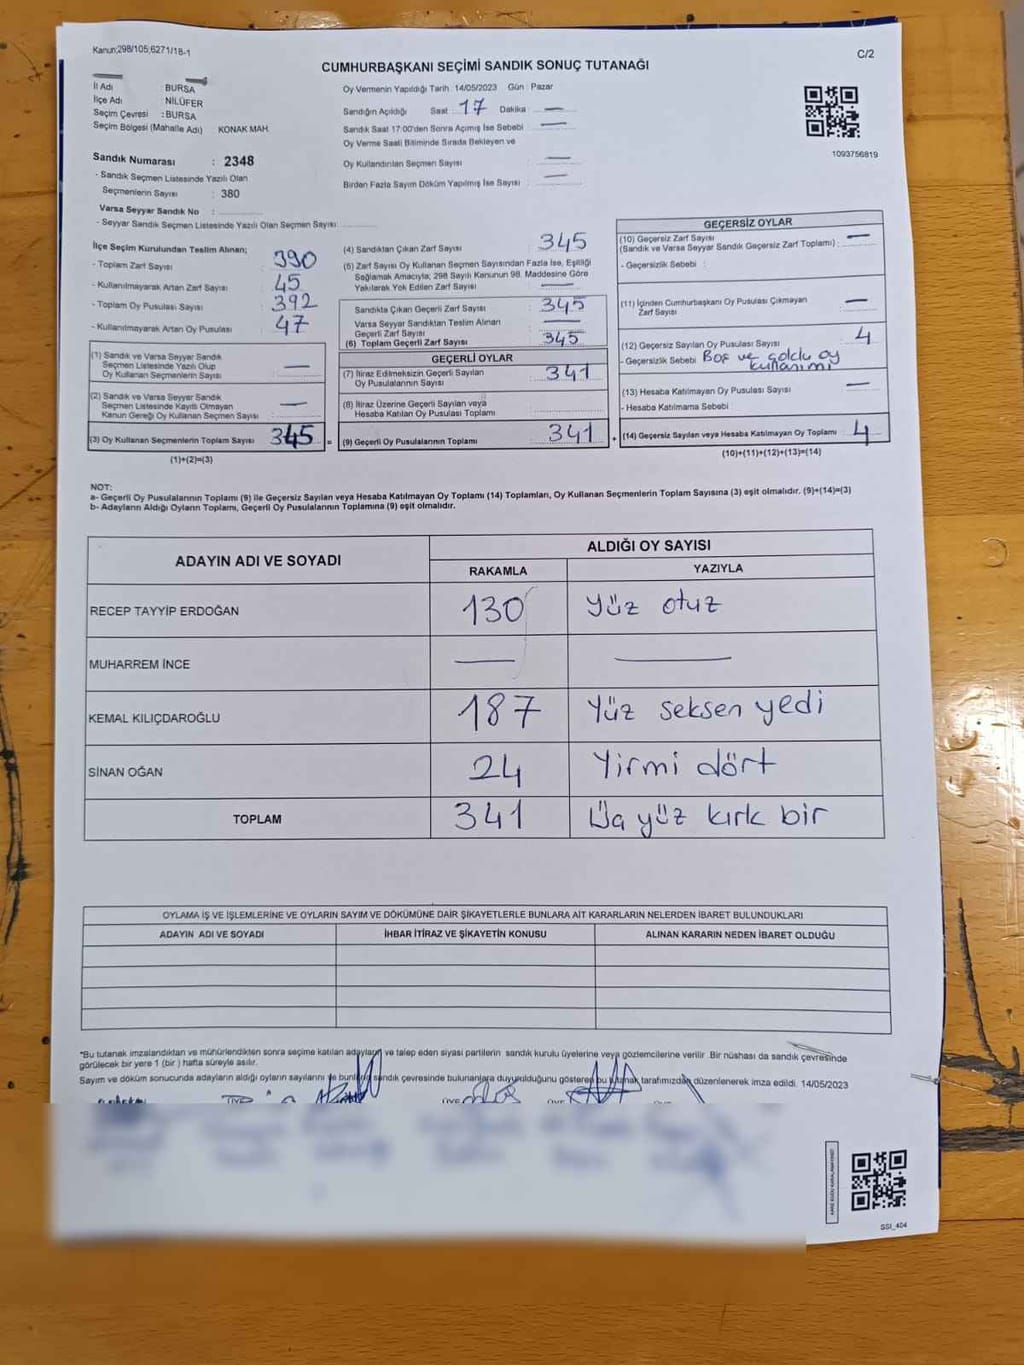 Kanun;298/105;6271/18-1
C/2
CUMHURBAŞKANI SEÇİMİ SANDIK SONUÇ TUTANAĞI
İl Adı BURSA
İlçe Adı : NİLÜFER
Seçim Çevresi : BURSA
Seçim Bölgesi (Mahalle Adı) KONAK MAH.
Sandık Numarası : 2348
- Sandık Seçmen Listesinde Yazılı Olan
Seçmenlerin Sayısı : 380
Varsa Seyyar Sandık No :
- Seyyar Sandık Listesinde Yazılı Olan Seçmen Sayısı:
Oy Vermenin Yapıldığı Tarih :14/05/2023 Gün : Pazar
Sandığın Açıldığı Saat : 17 Dakika : —
Sandık Saat 17:00'den Sonra Açımış İse Sebebi : —
Oy Verme Saati Bitiminde Sırada Bekleyen ve
Oy Kullandırılan Seçmen Sayısı : —
Birden Fazla Sayım Döküm Yapılmış İse Sayısı : —
1093756819
İlçe Seçim Kurulundan Teslim Alınan;
- Toplam Zarf Sayısı : 390
- Kullanılmayarak Artan Zarf Sayısı : 45
- Toplam Oy Pusulası Sayısı : 392
- Kullanılmayarak Artan Oy Pusulası : 47
(1) Sandık ve Varsa Seyyar Sandık
Seçmen Listesinde Yazılı Olup
Oy Kullanan Seçmenlerin Sayısı : —
(2) Sandık ve Varsa Seyyar Sandık
Seçmen Listesinde Kayıtlı Olmayan
Kanun Gereği Oy Kullanan Seçmen Sayısı : —
(3) Oy Kullanan Seçmenlerin Toplam Sayısı : 345 =
(1)+(2)=(3)
(4) Sandıktan Çıkan Zarf Sayısı : 345
(5) Zarf Sayısı Oy Kullanan Seçmen Sayısından Fazla İse, Eşitliği
Sağlamak Amacıyla; 298 Sayılı Kanunun 98. Maddesine Göre
Yakılarak Yok Edilen Zarf Sayısı : —
Sandıkta Çıkan Geçerli Zarf Sayısı : 345
Varsa Seyyar Sandıktan Teslim Alınan
Geçerli Zarf Sayısı : —
(6) Toplam Geçerli Zarf Sayısı : 345
GEÇERLİ OYLAR
(7) İtiraz Edilmeksizin Geçerli Sayılan
Oy Pusulasının Sayısı : 341
(8) İtiraz Üzerine Geçerli Sayılan veya
Hesaba Katılan Oy Pusulası Toplamı :
(9) Geçerli Oy Pusulalarının Toplamı : 341 +
GEÇERSİZ OYLAR
(10) Geçersiz Zarf Sayısı
(Sandık ve Varsa Seyyar Sandık Geçersiz Zarf Toplamı) : —
- Geçersizlik Sebebi :
(11) İçinden Cumhurbaşkanı Oy Pusulası Çıkmayan
Zarf Sayısı : —
(12) Geçersiz Sayılan Oy Pusulası Sayısı : 4
- Geçersizlik Sebebi : Boş ve çoklu oy
kullanımı
(13) Hesaba Katılmayan Oy Pusulası Sayısı : —
- Hesaba Katılmama Sebebi :
(14) Geçersiz Sayılan veya Hesaba Katılmayan Oy Toplamı : 4
(10)+(11)+(12)+(13)=(14)
NOT:
a- Geçerli Oy Pusulalarının Toplamı (9) ile Geçersiz Sayılan veya Hesaba Katılmayan Oy Toplamı (14) Toplamları, Oy Kullanan Seçmenlerin Toplam Sayısına (3) eşit olmalıdır. (9)+(14)=(3)
b- Adayların Aldığı Oyların Toplamı, Geçerli Oy Pusulalarının Toplamına (9) eşit olmalıdır.
ADAYIN ADI VE SOYADI
ALDIĞI OY SAYISI
RAKAMLA YAZIYLA
RECEP TAYYİP ERDOĞAN 130 Yüz otuz
MUHARREM İNCE — —
KEMAL KILIÇDAROĞLU 187 Yüz seksen yedi
SİNAN OĞAN 24 Yirmi dört
TOPLAM 341 Üç yüz kırk bir
OYLAMA İŞ VE İŞLEMLERİNE VE OYLARIN SAYIM VE DÖKÜMÜNE DAİR ŞİKAYETLERLE BUNLARA AİT KARARLARIN NELERDEN İBARET BULUNDUKLARI
ADAYIN ADI VE SOYADI İHBAR İTİRAZ VE ŞİKAYETİN KONUSU ALINAN KARARIN NEDEN İBARET OLDUĞU
*Bu tutanak imzalandıktan ve mühürlendikten sonra seçime katılan adayların ve talep eden siyasi partilerin sandık kurulu üyelerine veya gözlemcilerine verilir. Bir nüshası da sandık çevresinde
görülecek bir yere 1 (bir ) hafta süreyle asılır.
Sayım ve döküm sonucunda adayların aldığı oyların sayılarını ve bunların sandık çevresinde bulunanlara duyurulduğunu gösteren bu tutanak tarafımızdan düzenlenerek imza edildi. 14/05/2023
SSI_404